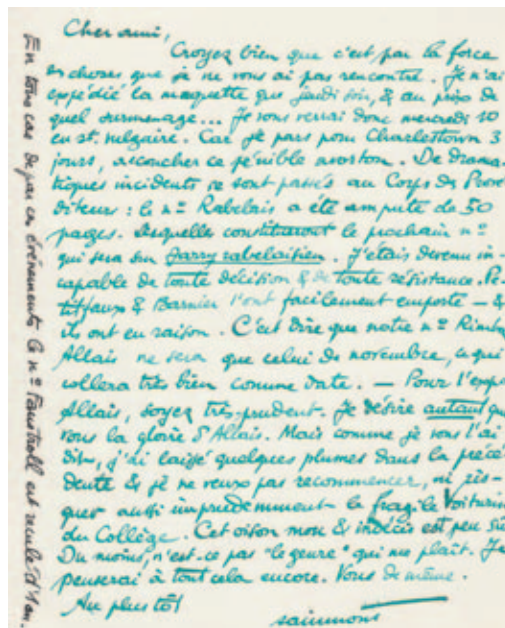 Cher ami,
Croyez bien que c'est par la force
des choses que je ne vous ai pas rencontré. Je n'ai
expédié la maquette que jeudi soir, & au prix de
quel surmenage... Je vous verrai donc mercredi 10
en st. vulgaire. Car je pars pour Charlestown 3
jours, accoucher ce pénible avorton. De drama-
tiques incidents se sont passés au Corps des Prové-
diteurs : le nº Rabelais a été amputé de 50
pages. Desquelles constitueront le prochain nº
qui sera un Jarry rabelaisien. J'étais devenu in-
capable de toute décision & de toute résistance. Pe-
titfaux & Barnier l'ont facilement emporté — &
ils ont eu raison. C'est dire que notre nº Rimb
Allais ne sera que celui de novembre, ce qui
collera très bien comme date. — Pour l'expo
Allais, soyez très prudent. Je désire autant que
vous la gloire d'Allais. Mais comme je vous l'ai
dit, j'ai laissé quelques plumes dans la précé-
dente & je ne veux pas recommencer, ni ris-
quer aussi imprudemment la fragile Voiturin
du Collège. Cet oison mou & indécis est peu sû
Du moins, n'est-ce pas "le genre" qui me plaît. Je
penserai à tout cela encore. Vous de même.
Au plus tôt
sainmont
En tous cas de par ces événements le nº Faustroll est reculé d'1 an.